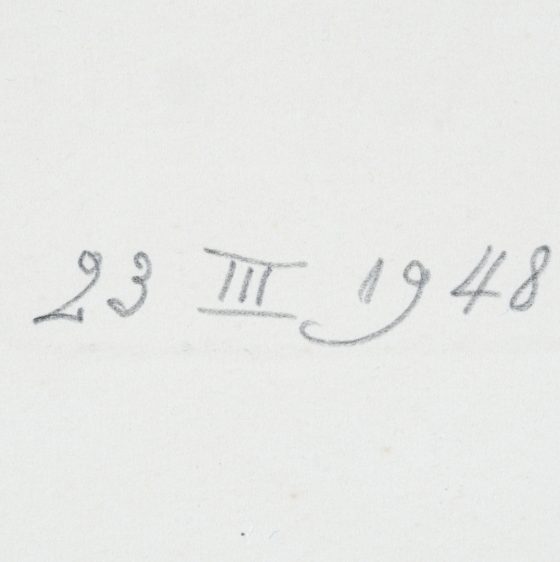 23 III 1948